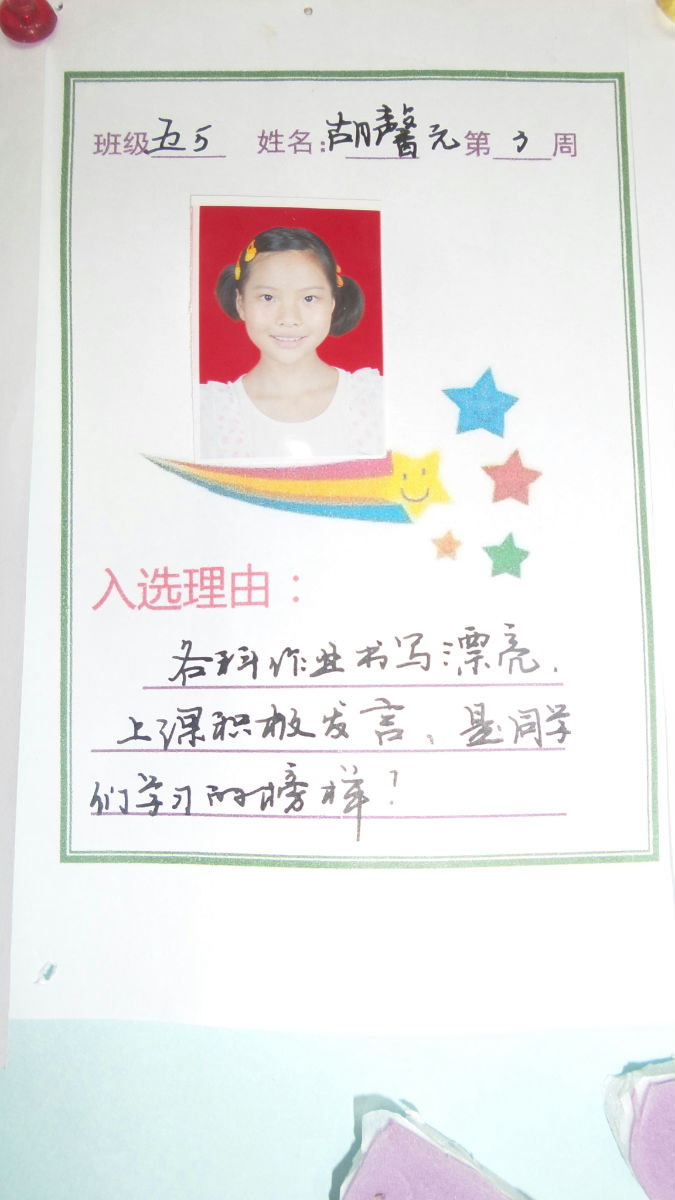 班级五5 姓名：胡馨元第3周
入选理由：
各科作业书写漂亮.
上课积极发言、是同学
们学习的榜样！